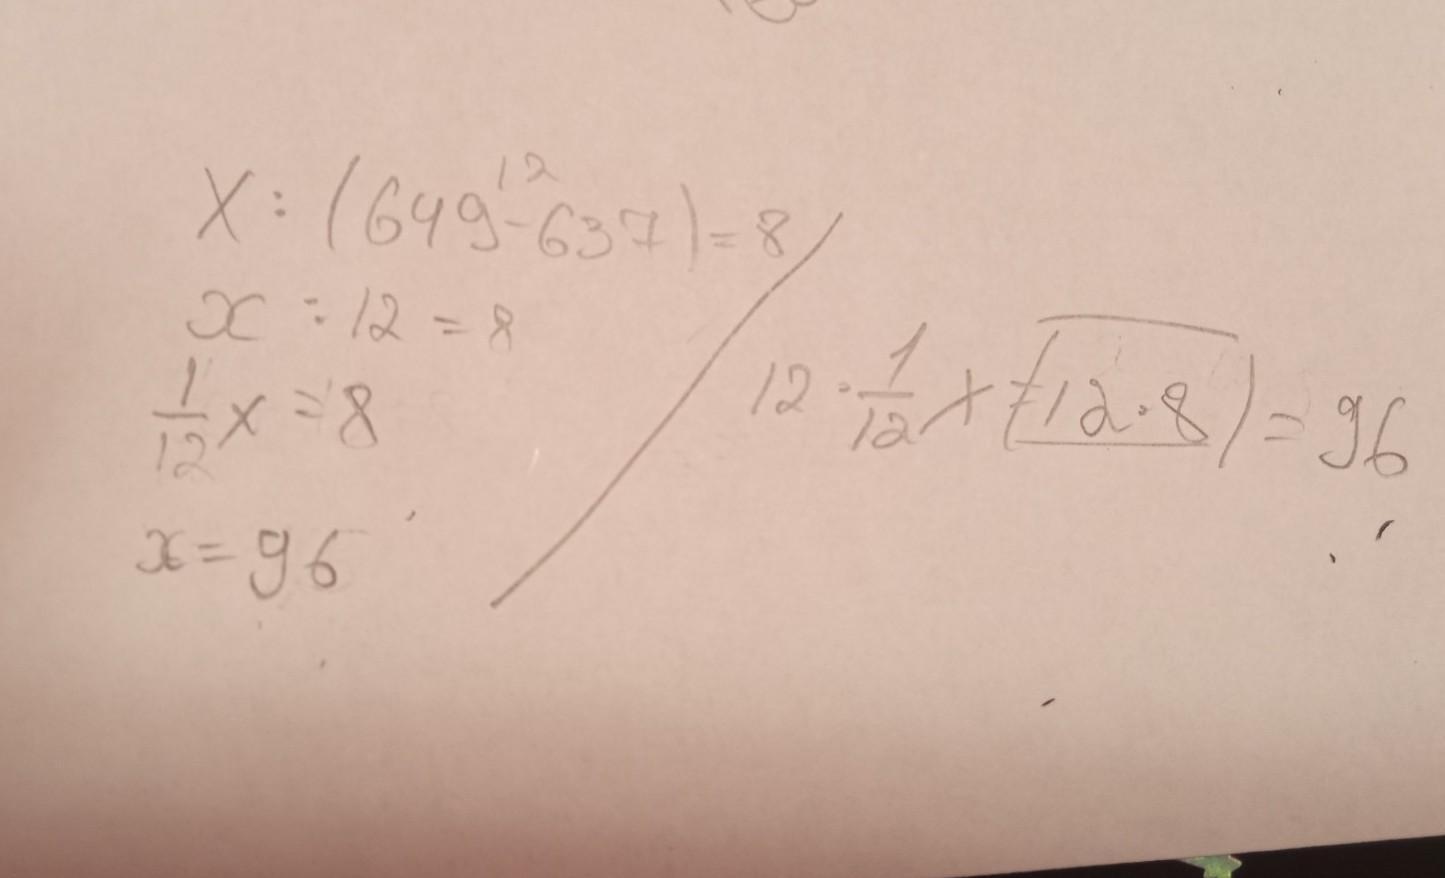 12
X : (649-637) = 8
x : 12 = 8
1/12 x = 8
x = 96
12 · 1/12 x (=12·8) = 96